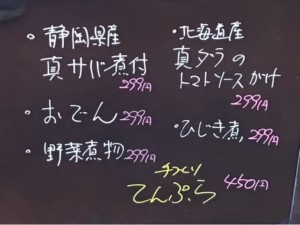 ・静岡県産
真サバ煮付
299円
・おでん 299円
・野菜煮物 299円
・北海道産
真ダラの
トマトソースがけ
299円
・ひじき煮 299円
手づくり
てんぷら 450円